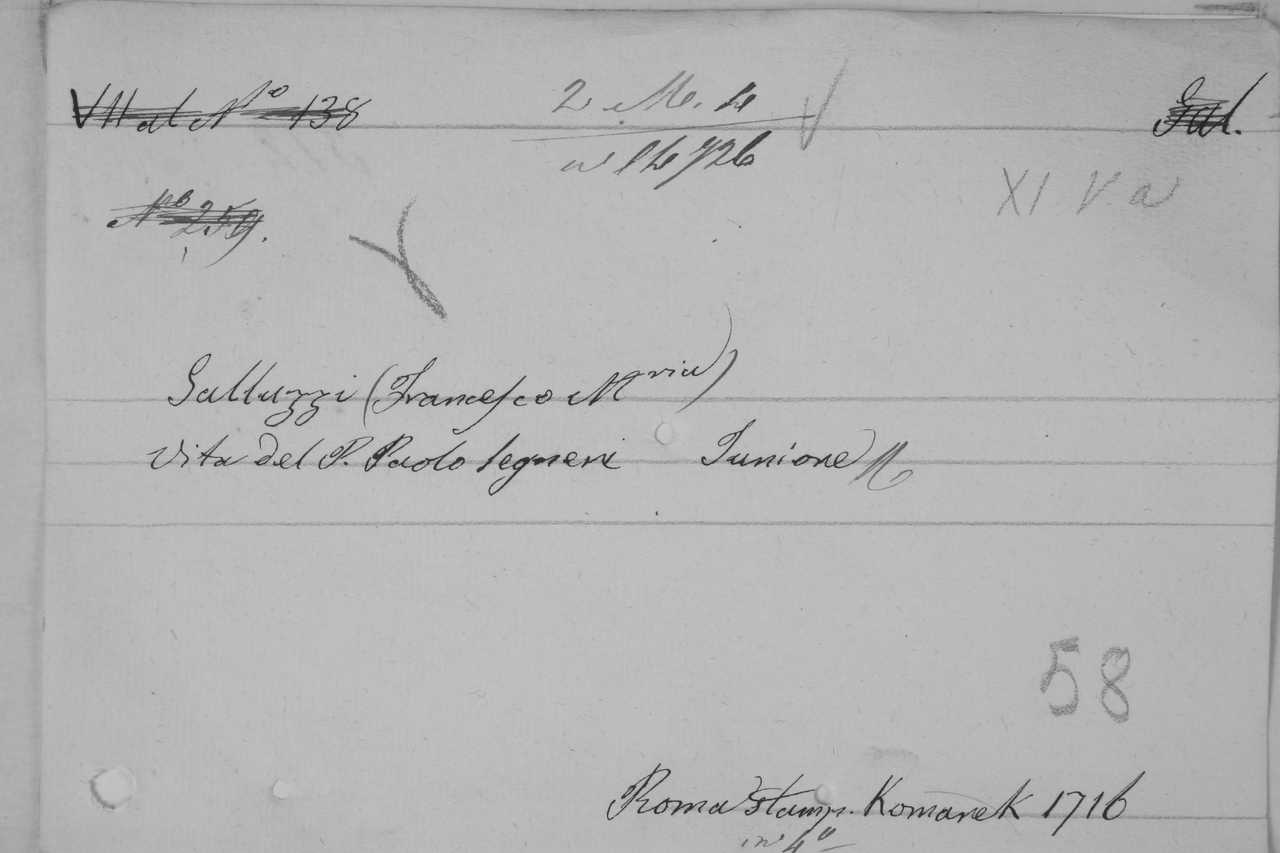 VII al Nº 138
2 M. 4
Gal.
XI V a
Nº 259.
Galluzzi (Francesco Mria)
Vita del P. Paolo Segneri Juniore
58
Roma Stamp. Komarek 1716
in 4º